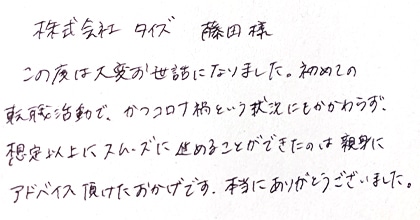 株式会社 タイズ 藤田様
この度は大変お世話になりました。初めての
転職活動で、かつコロナ禍という状況にもかかわらず、
想定以上にスムーズに進めることができたのは親身に
アドバイス頂けたおかげです。本当にありがとうございました。